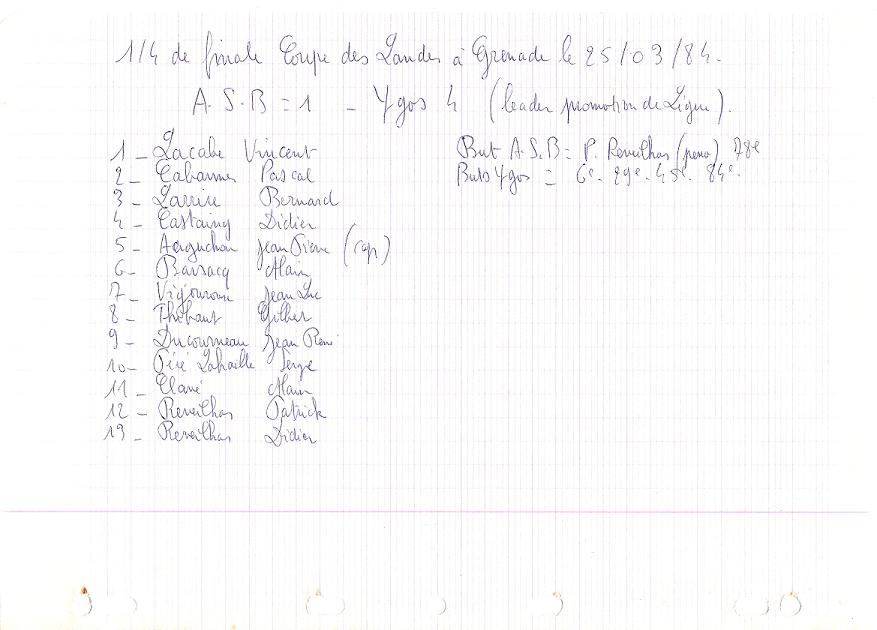 1/4 de finale Coupe des Landes à Grenade le 25/03/84.
A.S.B = 1 - Ygos 4 (leader promotion de Ligue).
1 - Lacabe Vincent
2 - Cabannes Pascal
3 - Larrieu Bernard
4 - Castaing Didier
5 - Jean Pierre (cap)
6 - Barsacq Alain
7 - Vigouroux Jean Luc
8 - Thibaut Gilbert
9 - Ducourneau Jean René
10 - Péré Lahaille Serge
11 - Clavé Alain
12 - Reveilhas Patrick
13 - Reveilhas Didier
But A.S.B = P. Reveilhas (peno) 78e
Buts Ygos = 6e. 29e. 45e. 84e.